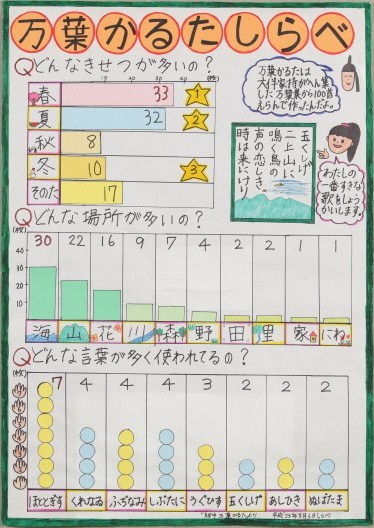 万葉かるたしらべ
Qどんなきせつが多いの?
万葉かるたは
大伴家持がへん集
した万葉集から100首
えらんで作ったんだよ。
10 20 30 40 (枚)
春 33 1
夏 32 2
秋 8
冬 10 3
そのた 17
玉くしげ
二上山に
鳴く鳥の
声の恋しき
時は来にけり
わたしの
一番すきな
歌をしょう
かいします。
Qどんな場所が多いの?
(枚)
40
30
20
10
30 22 16 9 7 4 2 2 1 1
海 山 花 川 森 野 田 里 家 にわ
Qどんな言葉が多く使われてるの?
(枚)
7 4 4 4 3 2 2 2
ほととぎす くれなゐ ふぢなみ しぶたに うぐひす 玉くしげ あしひき ぬばたま